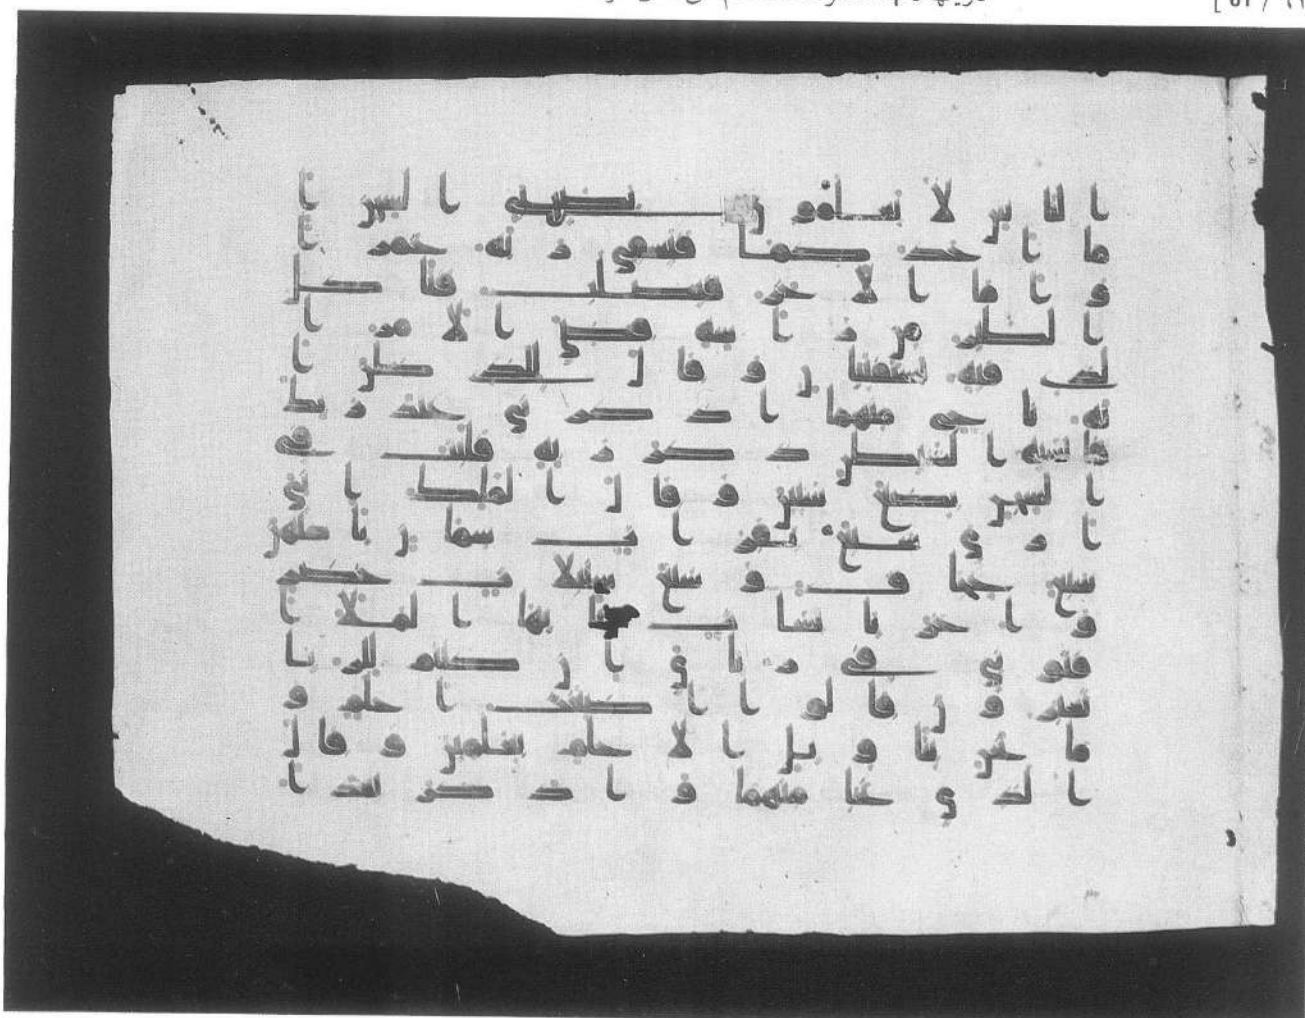 الناس لا يعلمون يصحبي السجن ا
ما احدكما فيسقي ربه خمرا
واما الاخر فيصلب فتاكل
الطير من راسه قضي الامر ا
لذي فيه تستفتيان وقال للذي ظن ا
نه ناج منهما اذكرني عند ربك
فانسيه الشيطن ذكر ربه فلبث في
السجن بضع سنين وقال الملك اني
ارى سبع بقرات سمان ياكلهن
سبع عجاف وسبع سنبلات خضر
واخر يابسات يايها الملا ا
فتوني في رياي ان كنتم للريا
تعبرون قالوا اضغث احلم و
ما نحن بتاويل الاحلم بعلمين وقال
الذي نجا منهما وادكر بعد ا